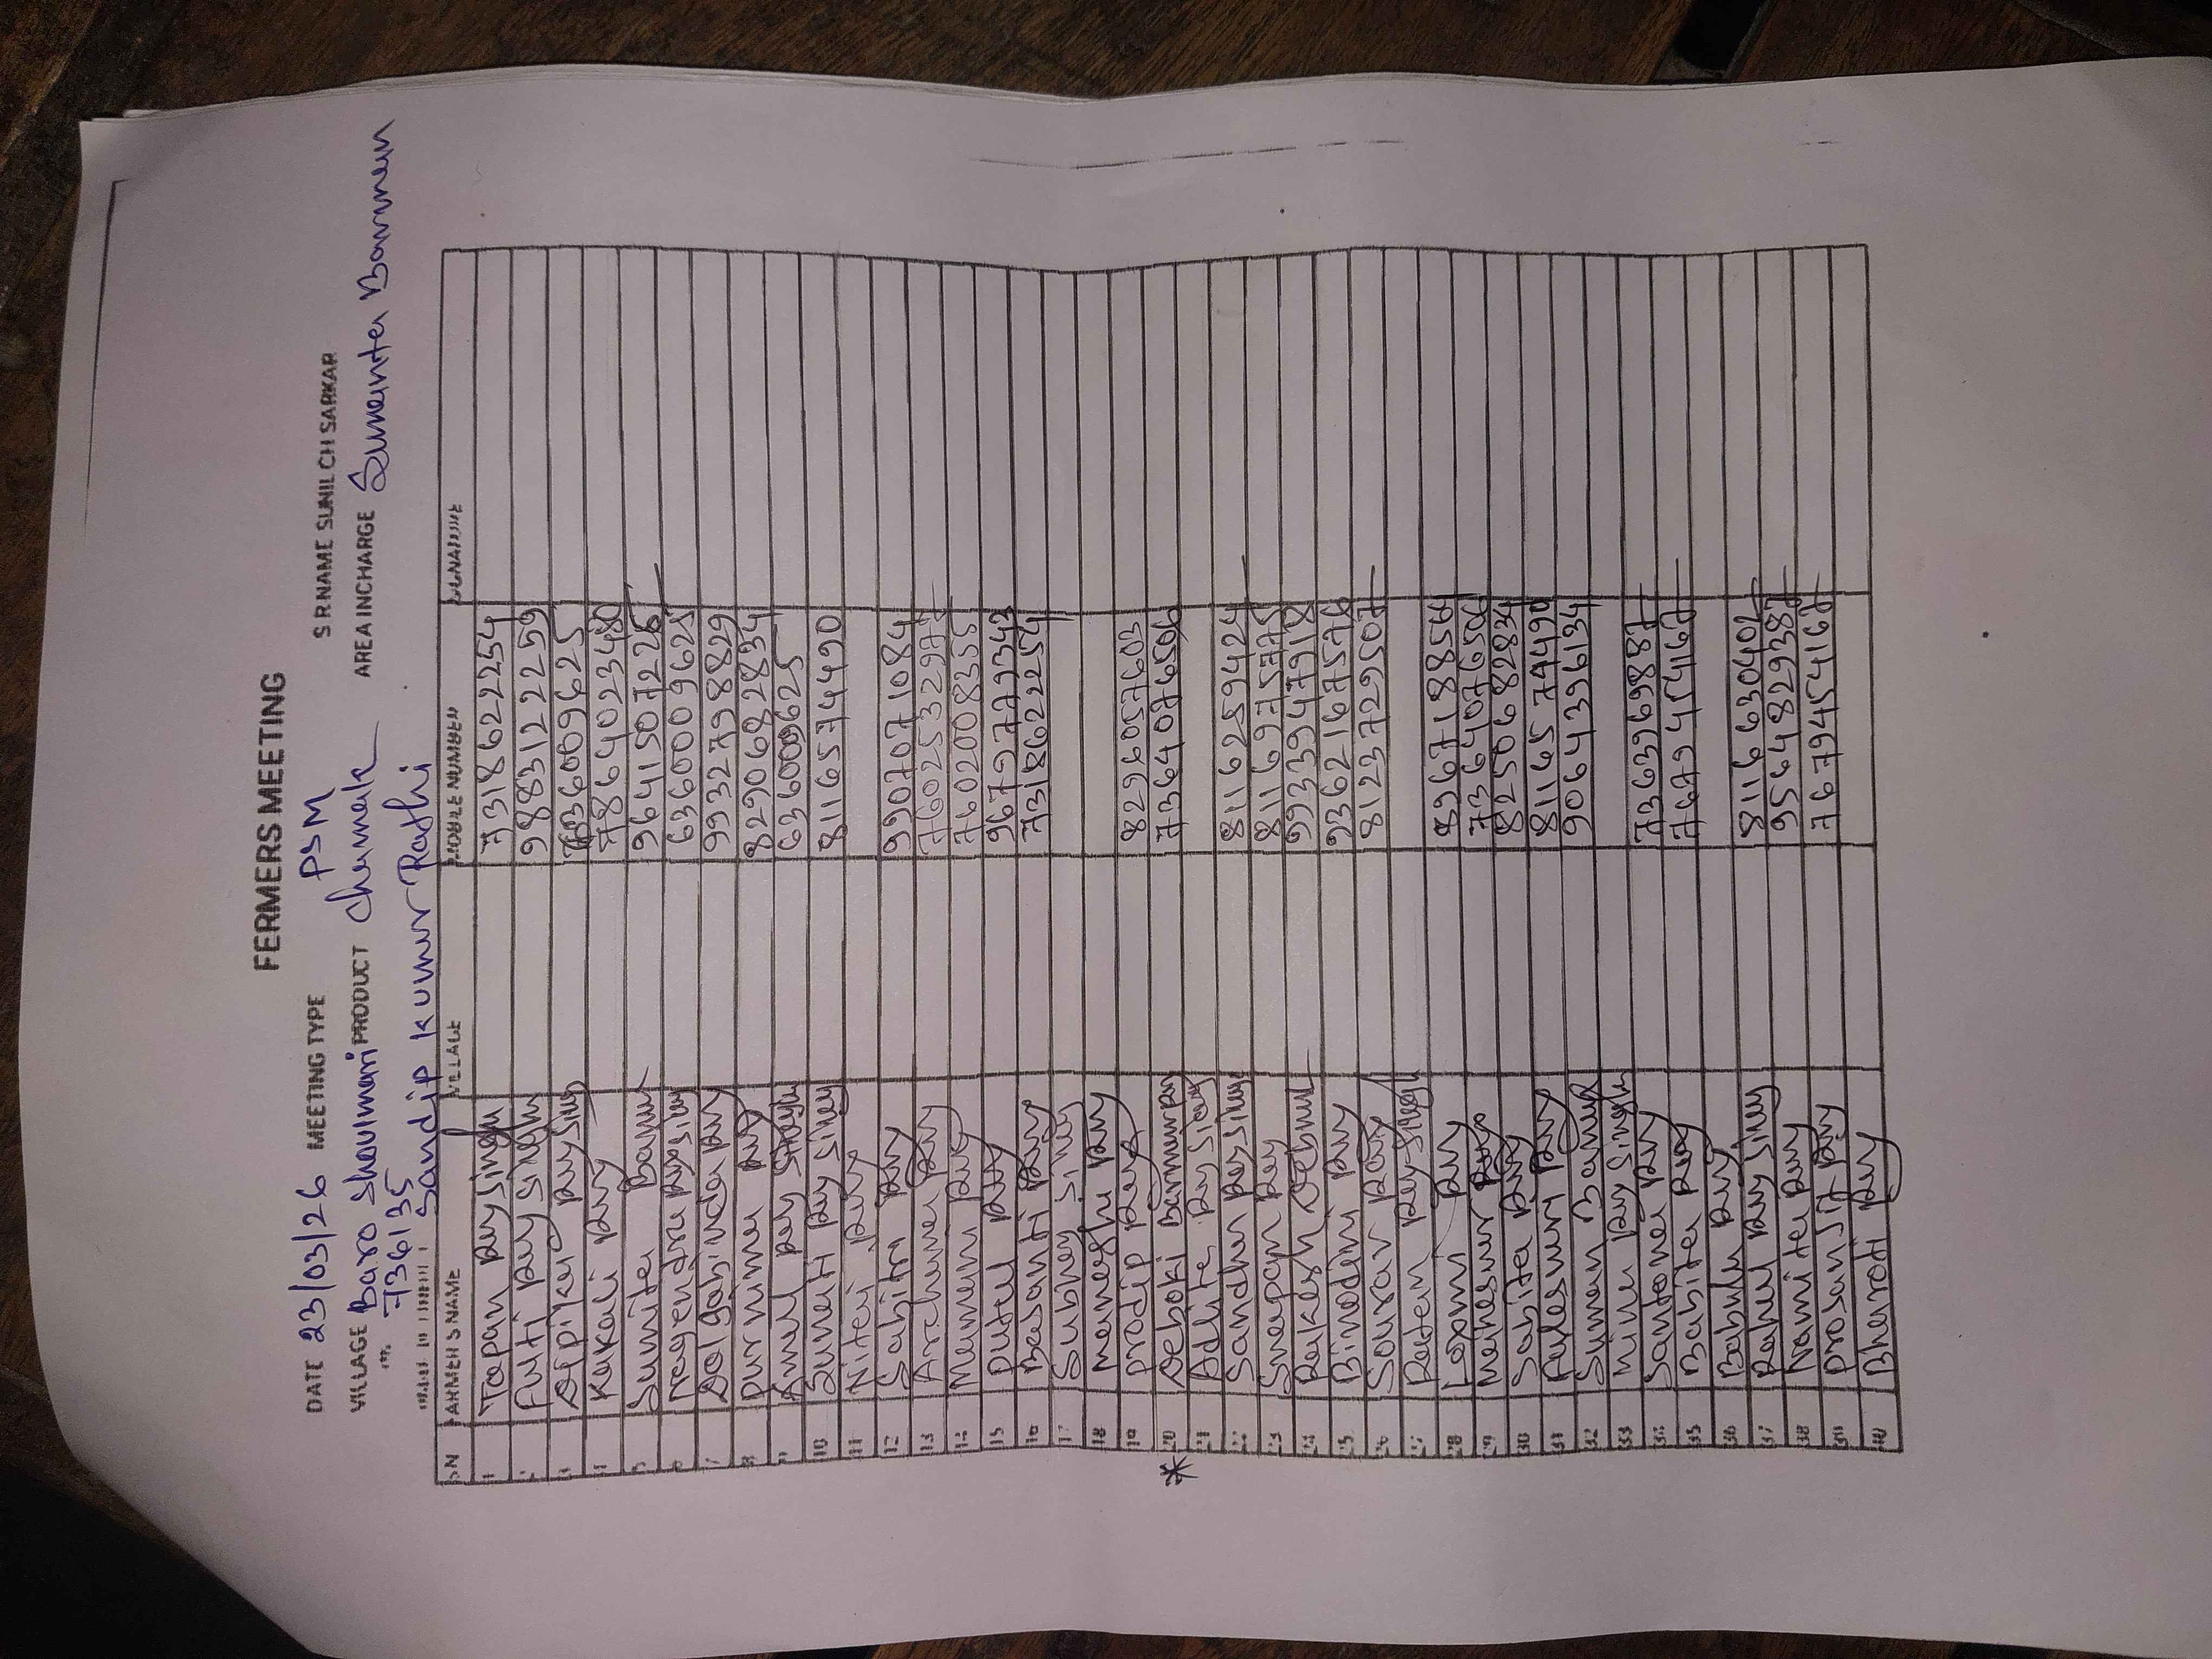 FERMERS MEETING
DATE 23/03/26 MEETING TYPE PSM S R NAME SUNIL CH SARKAR
VILLAGE Baro Shoulmari PRODUCT Chamak AREA INCHARGE Sumanta Barman
736135 Sandip Kumar Rathi
SN FARMER S NAME VILLAGE MOBILE NUMBER SIGNATURE
1 Tapan Ray Singh 7318622254
2 Futi Ray Singh 9883122259
3 Dipika Ray Sing 6360009625
4 Kakali Ray 7864023480
5 Sumita Barman 9641507226
6 Nagendra Ray Sing 6360009625
7 Dolgobinda Ray 9932798829
8 Purnima Ray 8290682834
9 Amul Ray Singh 636009625
10 Sumati Ray Sing 8116574490
11 Nitai Ray
12 Sabitri Ray 9907071084
13 Archana Ray 7602532977
14 Mamani Ray 7602008355
15 Putul Ray 9679779343
16 Basanti Ray 7318622254
17 Subhas Sing
18 Manesh Ray
19 Prodip Ray 8296057603
20 Deboki Barman Ray 7364076506
21 Adhite Ray Sing
22 Sandha Ray Sing 8116259424
23 Snapan Ray 8116975775
24 Rakesh Debnath 9933947918
25 Binodini Ray 9362167576
26 Sourav Ray 8123729507
27 Ratan Ray Singh
28 Laxmi Ray 8967188564
29 Maheswar Ray 7364076506
30 Sabita Ray 8250682834
31 Fuleswari Ray 8116577490
32 Suman Barman 9064396134
33 Minu Ray Singh
34 Santona Ray 7363969887
35 Babita Ray 7679454167
36 Bablu Ray
37 Rahul Ray Sing 8116630402
38 Namita Ray 9564829387
39 Prosenjit Ray 7679454167
40 Bharati Ray